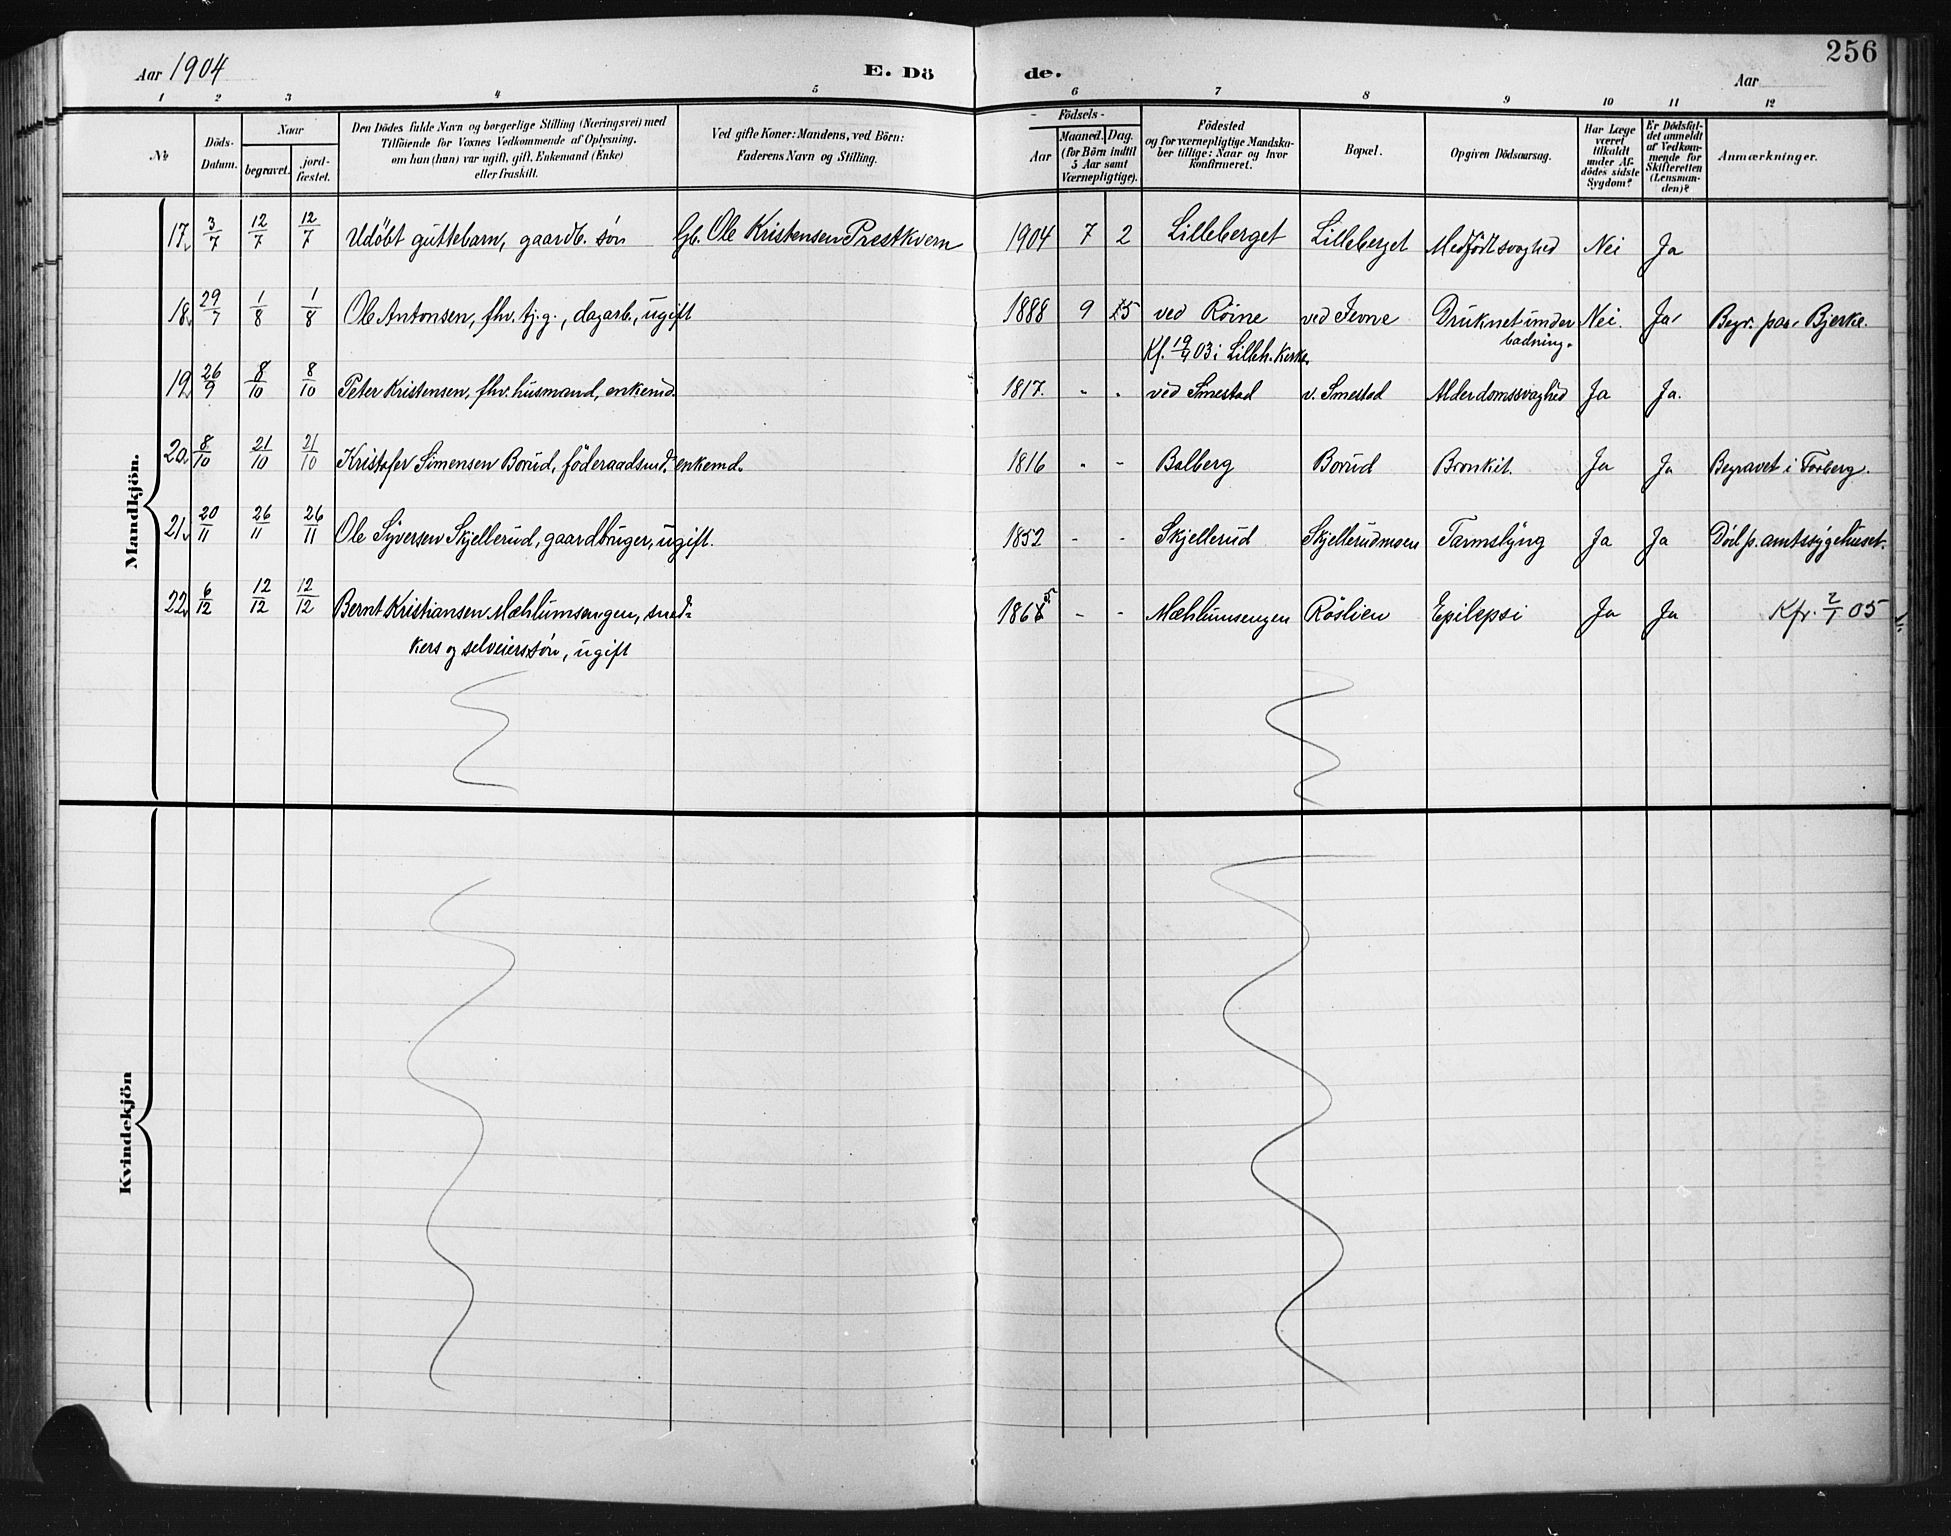 256
Aar 1904
E. Dö
de.
Aar
1 2 3 4 5 6 7 8 9 10 11 12
№
Döds-
Datum.
Naar
begravet.
jord-
fæstet.
Den Dödes fulde Navn og borgerlige Stilling (Næringsvei) med
Tilföiende for Voxnes Vedkommende af Oplysning,
om han (hun) var ugift, gift, Enkemand (Enke)
eller fraskilt.
Ved gifte Koner: Mandens, ved Börn:
Faderens Navn og Stilling.
Födsels-
Aar
Maaned.
Dag.
(for Börn indtil
5 Aar samt
Værnepligtige).
Födested
og for værnepligtige Mandska-
ber tillige: Naar og hvor
konfirmeret.
Bopæl.
Opgiven Dödsaarsag.
Har Læge
været
tilkaldt
under Af-
dödes sidste
Sygdom?
Er Dödsfal-
det anmeldt
af Vedkom-
mende for
Skifteretten
(Lensman-
den)?
Anmærkninger.
Mandkjön.
17. 3/7 12/7 12/7 Udöbt guttebarn, gaardb. sön Gb. Ole Kristensen Prestkvern 1904 7 2 Lilleberget Lilleberget Medfödt svaghed Nei Ja
18. 29/7 1/8 1/8 Ole Antonsen, fhv. tj.g., dagarb., ugift 1888 9 15 ved Röine ved Jevne Druknet under Nei. Ja Begr. paa Bjerke.
badning.
Kf. 19/4 03 i Lilleh. Kirke.
19. 26/9 8/10 8/10 Peter Kristensen, fhv. husmand, enkemd. 1817. - - ved Smestad v. Smestad Alderdomssvaghed Ja Ja.
20. 8/10 21/10 21/10 Kristofer Simensen Borud, föderaadsmd., enkemd. 1816 - - Balberg Borud Bronkit. Ja Ja Begravet i Faaberg.
21. 20/11 26/11 26/11 Ole Syversen Skjellerud, gaardbruger, ugift. 1852 - - Skjellerud Skjellerudmoen Tarmslyng Ja Ja Död p. amtssygehuset.
22. 6/12 12/12 12/12 Bernt Kristiansen Mæhlumsengen, sned- 1865 - - Mæhlumsengen Röslien Epilepsi Ja Ja Kfr. 2/1 05
kers og selveierssön, ugift
Kvindekjön